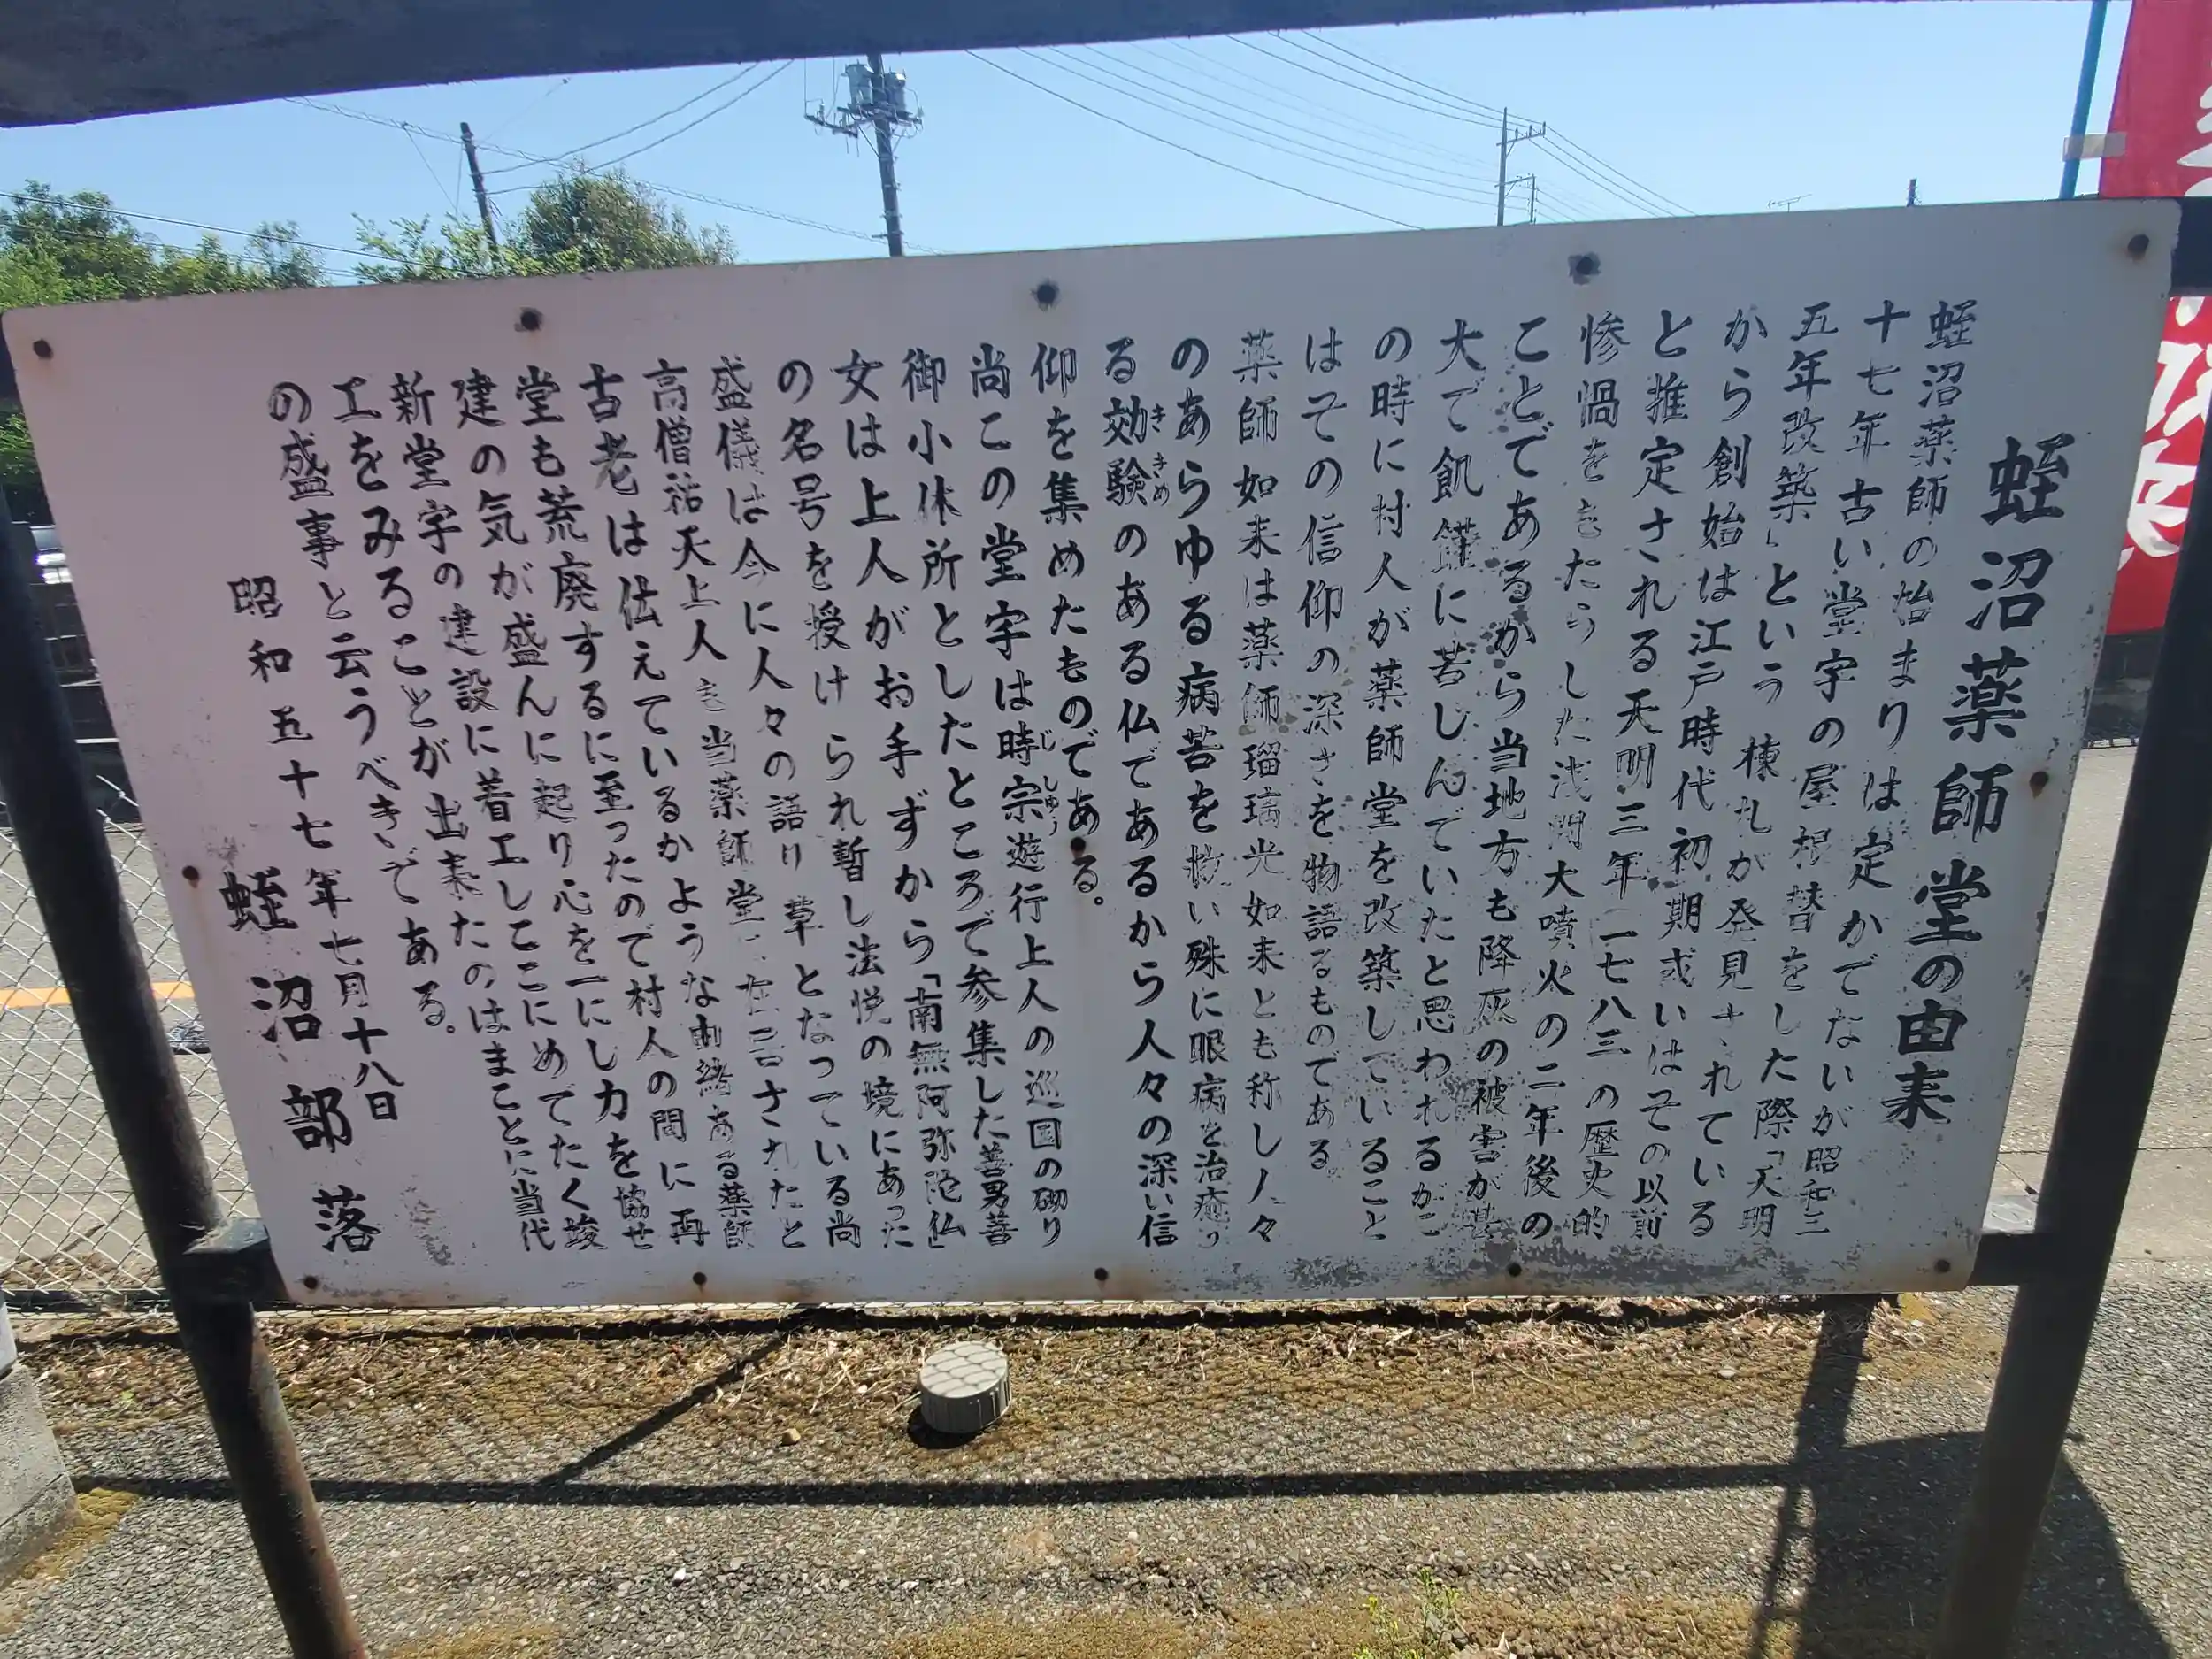 蛭沼薬師堂の由来
蛭沼薬師の始まりは定かでないが昭和三
十七年古い堂宇の屋根替をした際「天明
五年改築」という棟札が発見されている
から創始は江戸時代初期或いはその以前
と推定される天明三年一七八三の歴史的
惨禍をもたらした浅間大噴火の二年後の
ことであるから当地方も降灰の被害が甚
大で飢饉に苦しんでいたと思われるがこ
の時に村人が薬師堂を改築していること
はその信仰の深さを物語るものである
薬師如来は薬師瑠璃光如来とも称し人々
のあらゆる病苦を救い殊に眼病を治癒り
る効験のある仏であるから人々の深い信
き きめ
仰を集めたものである。
尚この堂宇は時宗遊行上人の巡国の砌り
じ しゅう
御小休所としたところで参集した善男善
女は上人がお手ずから「南無阿弥陀仏」
の名号を授けられ暫し法悦の境にあった
盛儀は今に人々の語り草となっている尚
高僧祐天上人も当薬師堂に されたと
古老は伝えているかような由緒ある薬師
堂も荒廃するに至ったので村人の間に再
建の気が盛んに起り心を一にし力を協せ
新堂宇の建設に着工しここにめでたく竣
工をみることが出来たのはまことに当代
の盛事と云うべきである。
昭和五十七年七月十八日
蛭沼部落